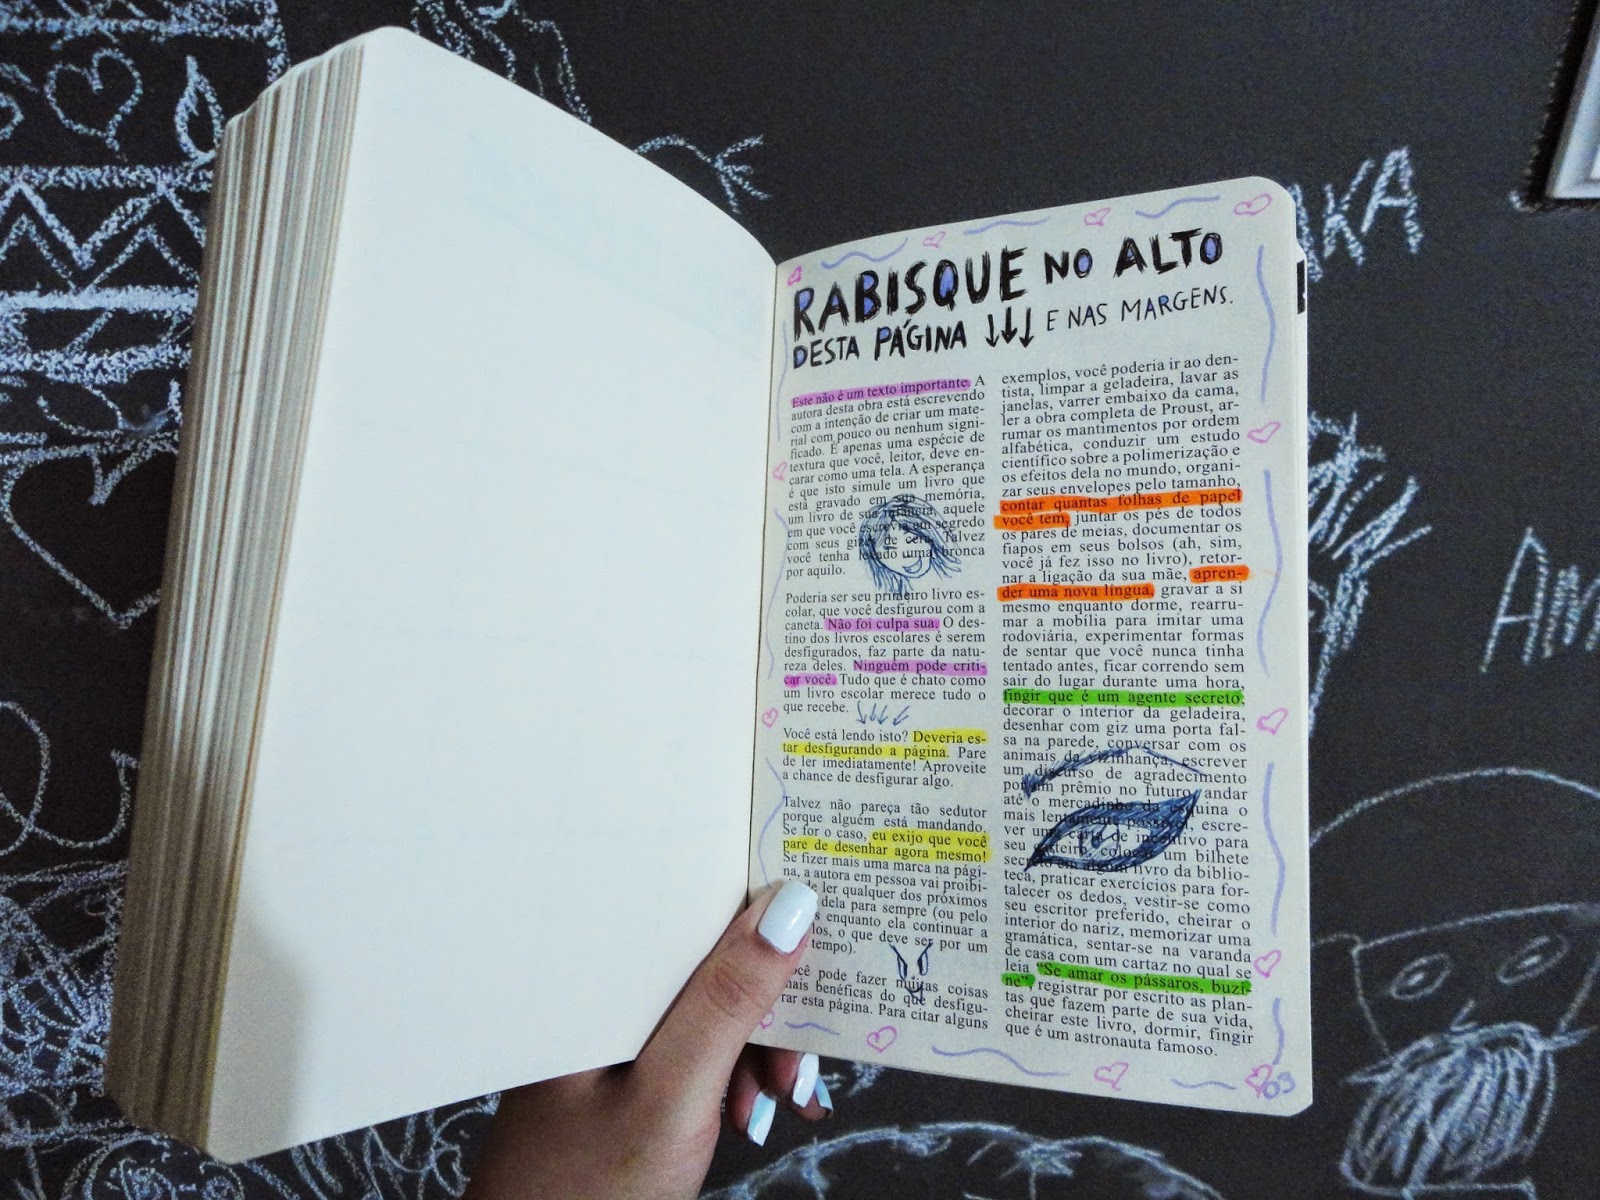 RABISQUE NO ALTO
DESTA PÁGINA ↓↓↓ E NAS MARGENS.
Este não é um texto importante. A
autora desta obra está escrevendo
com a intenção de criar um mate-
rial com pouco ou nenhum signi-
ficado. É apenas uma espécie de
textura que você, leitor, deve en-
carar como uma tela. A esperança
é que isto simule um livro que
está gravado em sua memória,
um livro de sua infância, aquele
em que você escrevia em segredo
com seus gizes de cera. Talvez
você tenha levado uma bronca
por aquilo.
Poderia ser seu primeiro livro es-
colar, que você desfigurou com a
caneta. Não foi culpa sua. O des-
tino dos livros escolares é serem
desfigurados, faz parte da natu-
reza deles. Ninguém pode criti-
car você. Tudo que é chato como
um livro escolar merece tudo o
que recebe.
Você está lendo isto? Deveria es-
tar desfigurando a página. Pare
de ler imediatamente! Aproveite
a chance de desfigurar algo.
Talvez não pareça tão sedutor
porque alguém está mandando.
Se for o caso, eu exijo que você
pare de desenhar agora mesmo!
Se fizer mais uma marca na pági-
na, a autora em pessoa vai proibi-
de ler qualquer dos próximos
dela para sempre (ou pelo
enquanto ela continuar a
los, o que deve ser por um
tempo).
você pode fazer muitas coisas
mais benéficas do que desfigu-
rar esta página. Para citar alguns
exemplos, você poderia ir ao den-
tista, limpar a geladeira, lavar as
janelas, varrer embaixo da cama,
ler a obra completa de Proust, ar-
rumar os mantimentos por ordem
alfabética, conduzir um estudo
científico sobre a polimerização e
os efeitos dela no mundo, organi-
zar seus envelopes pelo tamanho,
contar quantas folhas de papel
você tem, juntar os pés de todos
os pares de meias, documentar os
fiapos em seus bolsos (ah, sim,
você já fez isso no livro), retor-
nar a ligação da sua mãe, apren-
der uma nova língua, gravar a si
mesmo enquanto dorme, rearru-
mar a mobília para imitar uma
rodoviária, experimentar formas
de sentar que você nunca tinha
tentado antes, ficar correndo sem
sair do lugar durante uma hora,
fingir que é um agente secreto,
decorar o interior da geladeira,
desenhar com giz uma porta fal-
sa na parede, conversar com os
animais da vizinhança, escrever
um discurso de agradecimento
por um prêmio no futuro, andar
até o mercadinho da esquina o
mais lentamente possível, escre-
ver uma carta de incentivo para
seu carteiro, colocar um bilhete
secreto em algum livro da biblio-
teca, praticar exercícios para for-
talecer os dedos, vestir-se como
seu escritor preferido, cheirar o
interior do nariz, memorizar uma
gramática, sentar-se na varanda
de casa com um cartaz no qual se
leia "Se amar os pássaros, buzi-
ne", registrar por escrito as plan-
tas que fazem parte de sua vida,
cheirar este livro, dormir, fingir
que é um astronauta famoso.
03